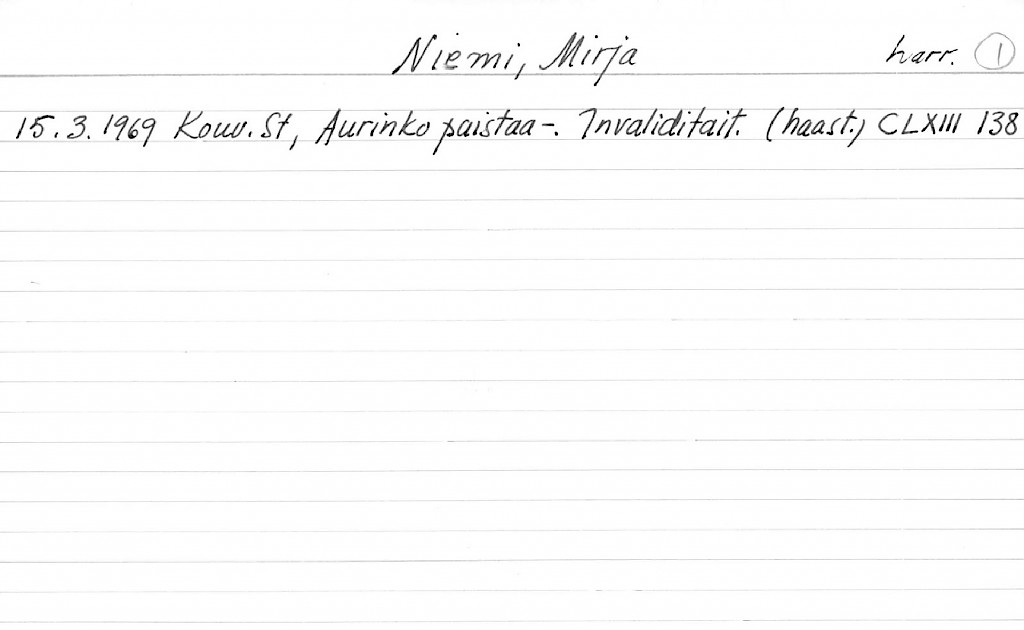 Niemi, Mirja harr. 1
15.3.1969 Kouv. St, Aurinko paistaa-. Invaliditait. (haast.) CLXIII 138